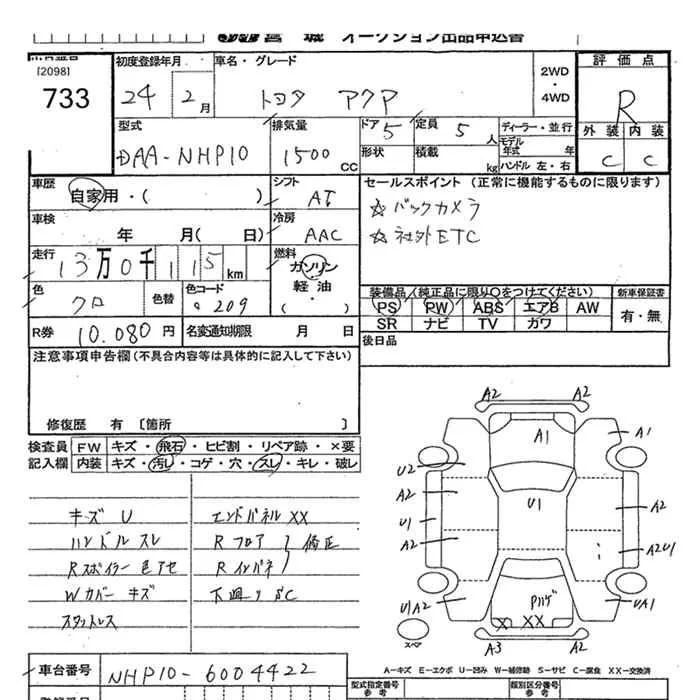 宮 城 オークション出品申込書
[2098]
733
初度登録年月
24 2月
車名・グレード
トヨタ アクア
2WD
・
4WD
評価点
R
外装 内装
C C
型式
DAA-NHP10
排気量
1500 CC
ドア 5
定員 5 人
形状
積載 kg
ディーラー・並行
モデル年式 年
ハンドル 左・右
車歴
自家用・( )
シフト
AT
車検
年 月( 日)
冷房
AAC
走行
13万0千115 km
燃料
ガソリン
軽油・
( )
色
クロ
色替
色コード
209
R券 10.080 円
名変通知期限 月 日
セールスポイント (正常に機能するものに限ります)
☆ バックカメラ
☆ 社外ETC
装備品(純正品に限り○をつけてください)
PS PW ABS エアB AW
SR ナビ TV カワ
新車保証書
有・無
後日品
注意事項申告欄(不具合内容等は具体的に記入して下さい)
修復歴 有 [箇所 ]
検査員 FW キズ・飛石・ヒビ割・リペア跡・×要
記入欄 内装 キズ・汚レ・コゲ・穴・スレ・キレ・破レ
キズ U
ハンドル スレ
Rスポイラー 色アセ
Wカバー キズ
スタットレス
エンドパネル XX
Rフロア
Rインパネ
修正
下廻り SC
A2 A2
A1 A1
U2
A2
U1 U1 A2
A2 A2U1
U1A2 Pハゲ UA1
X XX
スペア
A3 A2
A-キズ E-エクボ U-凹み W-補修跡 S-サビ C-腐食 XX-交換済
車台番号 NHP10-6004422
型式指定番号
参考
類別区分番号
参考